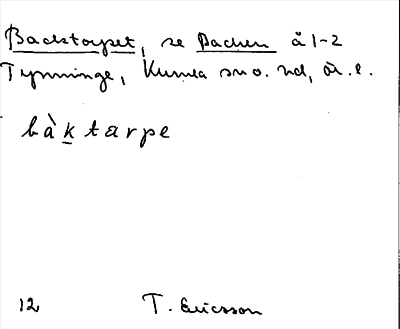 Backtorpet, se Backen å 1-2
Tynninge, Kumla sn o. hd, Ör. l.
bàktarpe
12 T. Ericsson